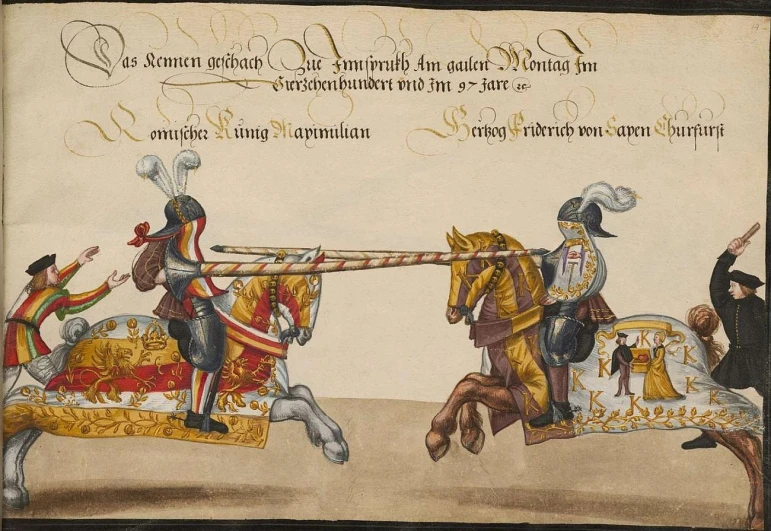 Das Rennen geschach Zue Innsprukh Am gailen Montag Im
Vierzehenhundert vnd Im 97 Jare
Romischer Kunig Maximilian
Hertzog Friderich von Saxen Churfurst
K K K K K K K K